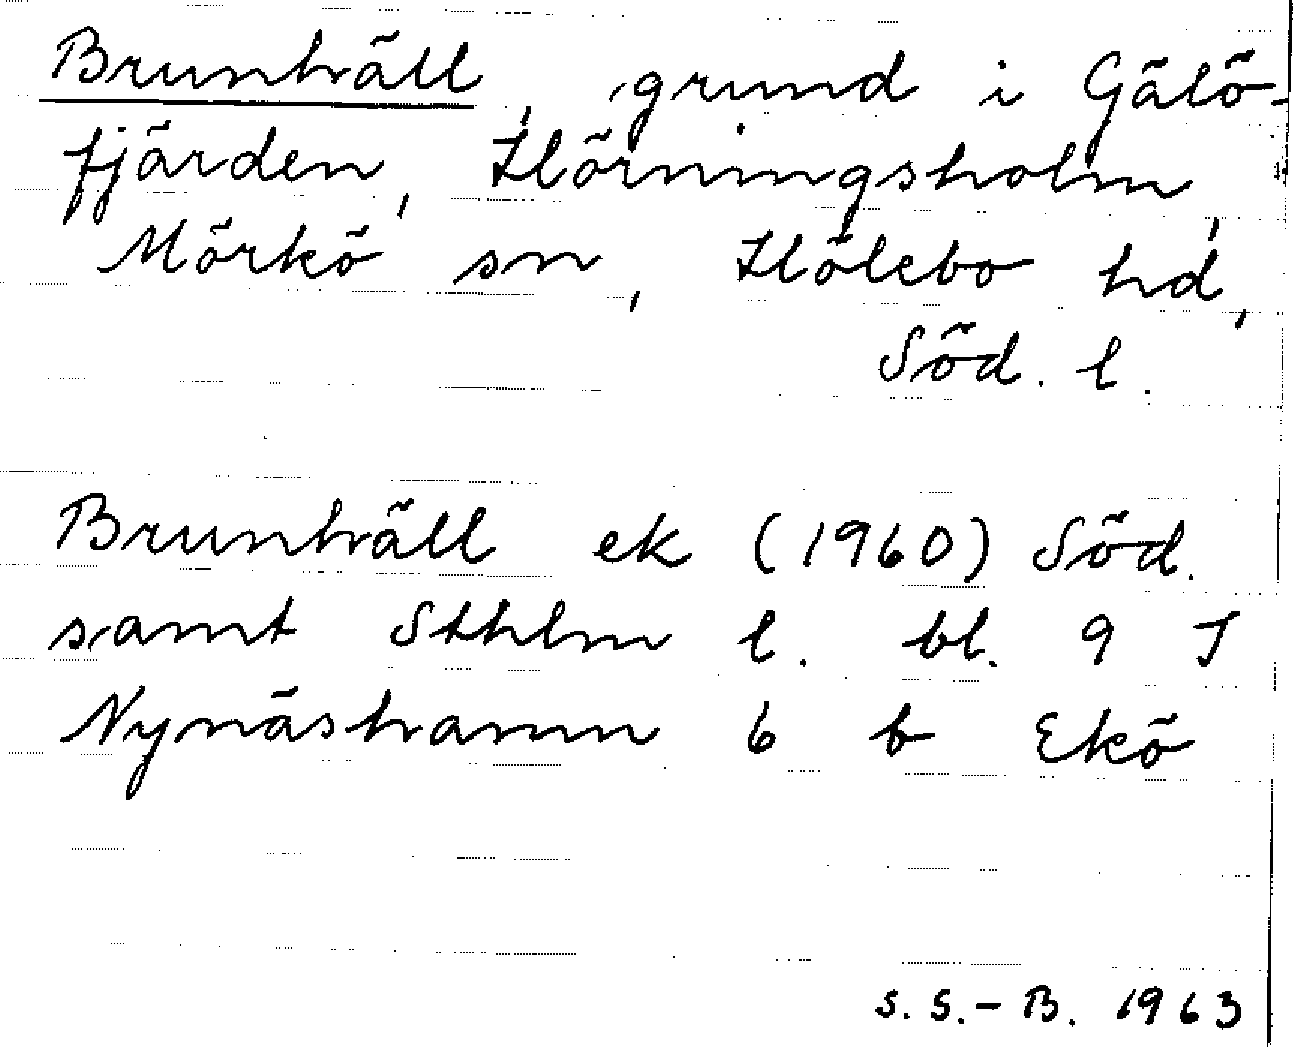 Brunhäll, grund i Gälö-
fjärden, Hörningsholm,
Mörkö sn, Hölebo hd,
Söd. l.
Brunhäll ek (1960) Söd.
samt Sthlm l. bl. 9 I
Nynäshamn 6 b Ekö
S. S.-B. 1963